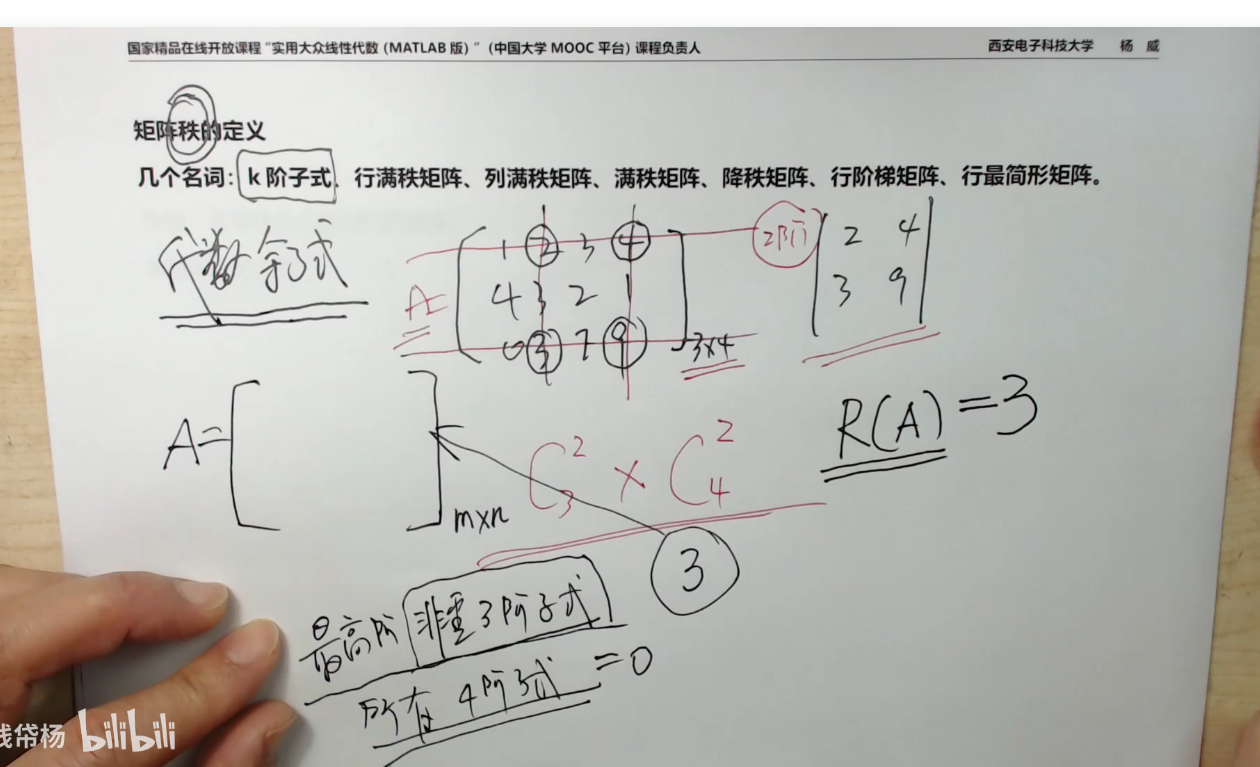 国家精品在线开放课程“实用大众线性代数（MATLAB 版）”（中国大学 MOOC 平台）课程负责人 西安电子科技大学 杨 威
矩阵秩的定义
几个名词：k 阶子式、行满秩矩阵、列满秩矩阵、满秩矩阵、降秩矩阵、行阶梯矩阵、行最简形矩阵。
代数余子式
A=
1 2 3 4
4 3 2 1
0 3 7 9
3×4
2阶
2 4
3 9
A=[ ]m×n
C₃² × C₄²
R(A)=3
3
最高阶非零3阶子式
所有4阶子式=0
线帒杨 bilibili